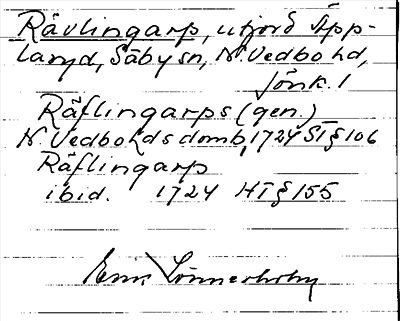 Rävlingarp, utjord Äpp-
laryd, Säby sn, N. Vedbo hd,
Jönk. l
Räflingarps (gen.)
N. Vedbo hds domb, 1724 ST § 106
Räflingarp
ibid. 1724 HT § 155